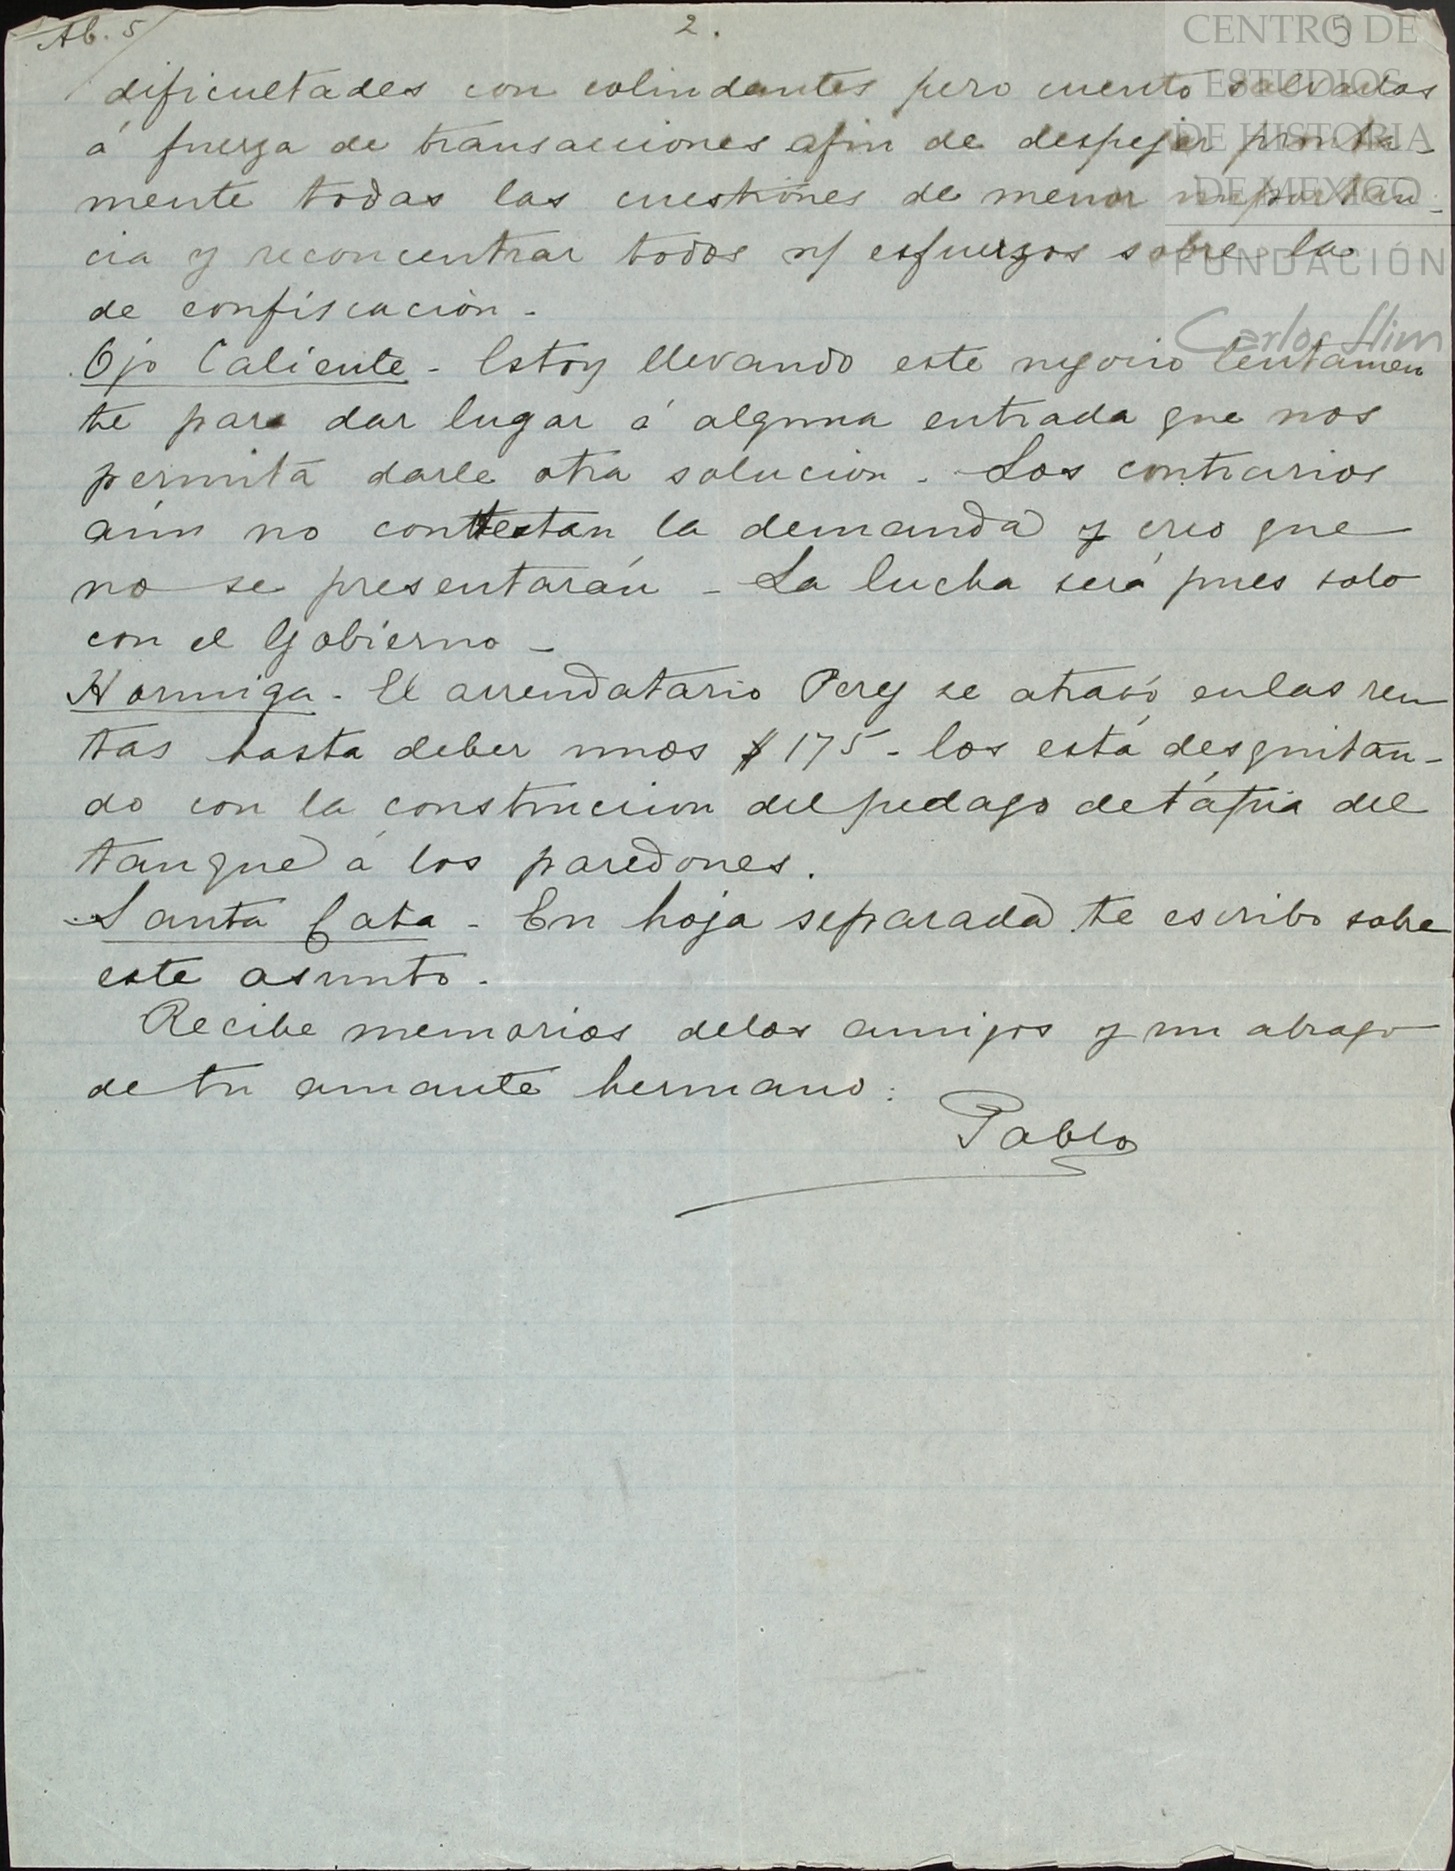 Ab. 5
2.
5
CENTRO DE
ESTUDIOS
DE HISTORIA
DE MEXICO
FUNDACIÓN
Carlos Slim
dificultades con colindantes pero cuento salvarlas
á fuerza de transacciones afin de despejar pronta-
mente todas las cuestiones de menor importan-
cia y reconcentrar todos n/ esfuerzos sobre la
de confiscacion -
Ojo Caliente - Estoy llevando este negocio lentamen
te para dar lugar á alguna entrada que nos
permita darle otra solucion. Los contrarios
aún no contestan la demanda y creo que
no se presentarán - La lucha será pues solo
con el Gobierno -
Hormiga - El arrendatario Perez se atrasó en las ren
tas hasta deber unos $175 - los está desquitan-
do con la construccion del pedazo de tápia del
tanque á los paredones.
Santa Cata - En hoja separada te escribo sobre
este asunto -
Recibe memorias de los amigos y un abrazo
de tu amante hermano:
Pablo